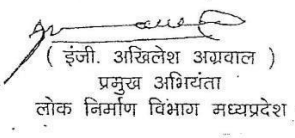 ( इंजी. अखिलेश अग्रवाल )
प्रमुख अभियंता
लोक निर्माण विभाग मध्यप्रदेश